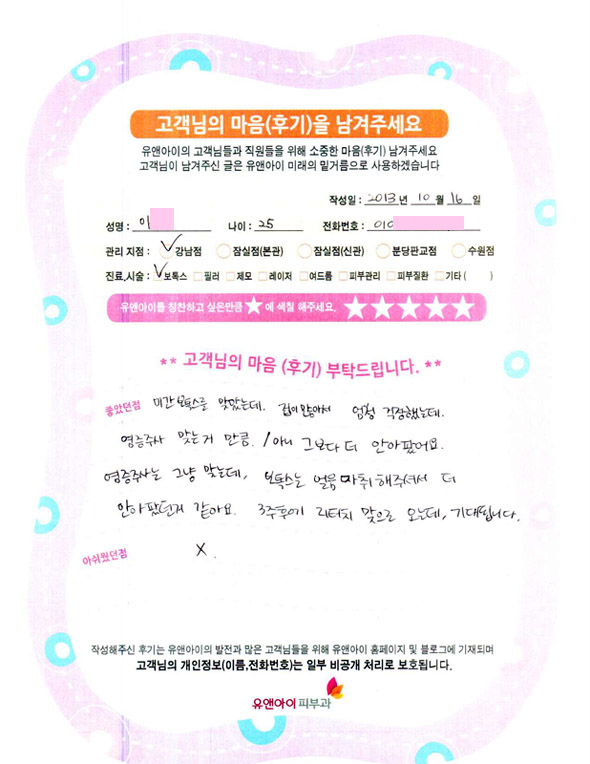 고객님의 마음(후기)을 남겨주세요
유앤아이의 고객님들과 직원들을 위해 소중한 마음(후기) 남겨주세요
고객님이 남겨주신 글은 유앤아이 미래의 밑거름으로 사용하겠습니다
작성일 : 2013 년 10 월 16 일
성명 : 이 나이 : 25 전화번호 : 010
관리 지점 : 강남점 잠실점(본관) 잠실점(신관) 분당판교점 수원점
진료,시술 : 보톡스 필러 제모 레이저 여드름 피부관리 피부질환 기타 ( )
유앤아이를 칭찬하고 싶은만큼 ★ 에 색칠 해주세요. ★★★★★
** 고객님의 마음 (후기) 부탁드립니다. **
좋았던점 미간 보톡스를 맞았는데. 겁이 많아서 엄청 걱정했는데.
염증주사 맞는거 만큼. / 아니 그보다 더 안아팠어요.
염증주사는 그냥 맞는데, 보톡스는 얼음마취 해주셔서 더
안아팠던거 같아요. 3주후에 리터치 맞으러 오는데, 기대됩니다.
아쉬웠던점 X.
작성해주신 후기는 유앤아이의 발전과 많은 고객님들을 위해 유앤아이 홈페이지 및 블로그에 기재되며
고객님의 개인정보(이름,전화번호)는 일부 비공개 처리로 보호됩니다.
유앤아이 피부과